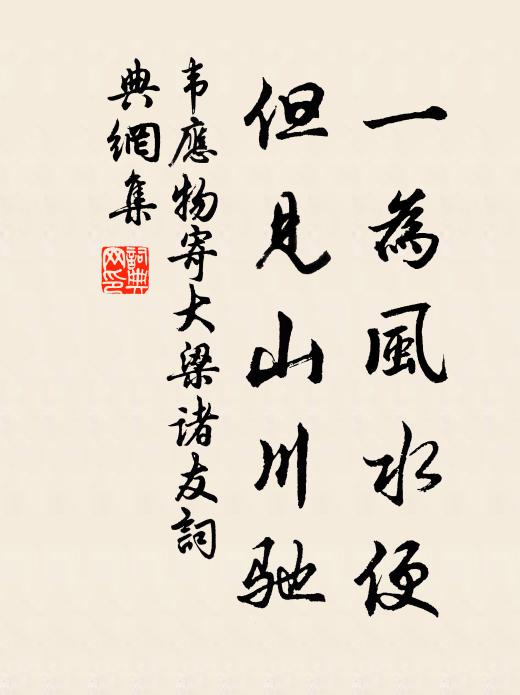 一為風水便
但見山川馳
韦應物寄大梁诸友詞
典網集
詞典
网印